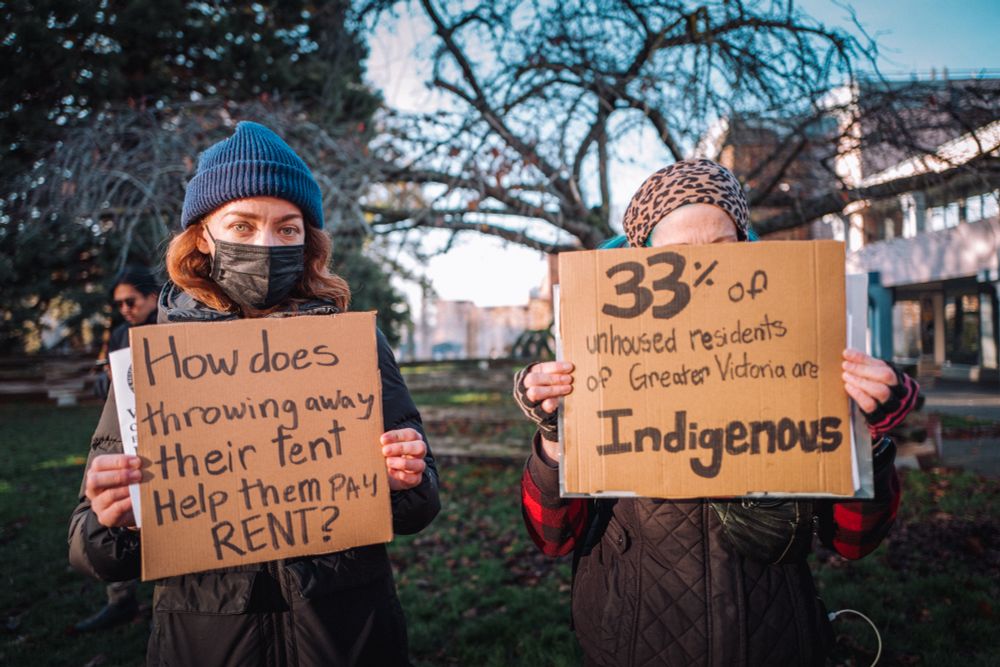 How does
throwing away
their tent
Help them PAY
RENT?
33% of
unhoused residents
of Greater Victoria are
Indigenous